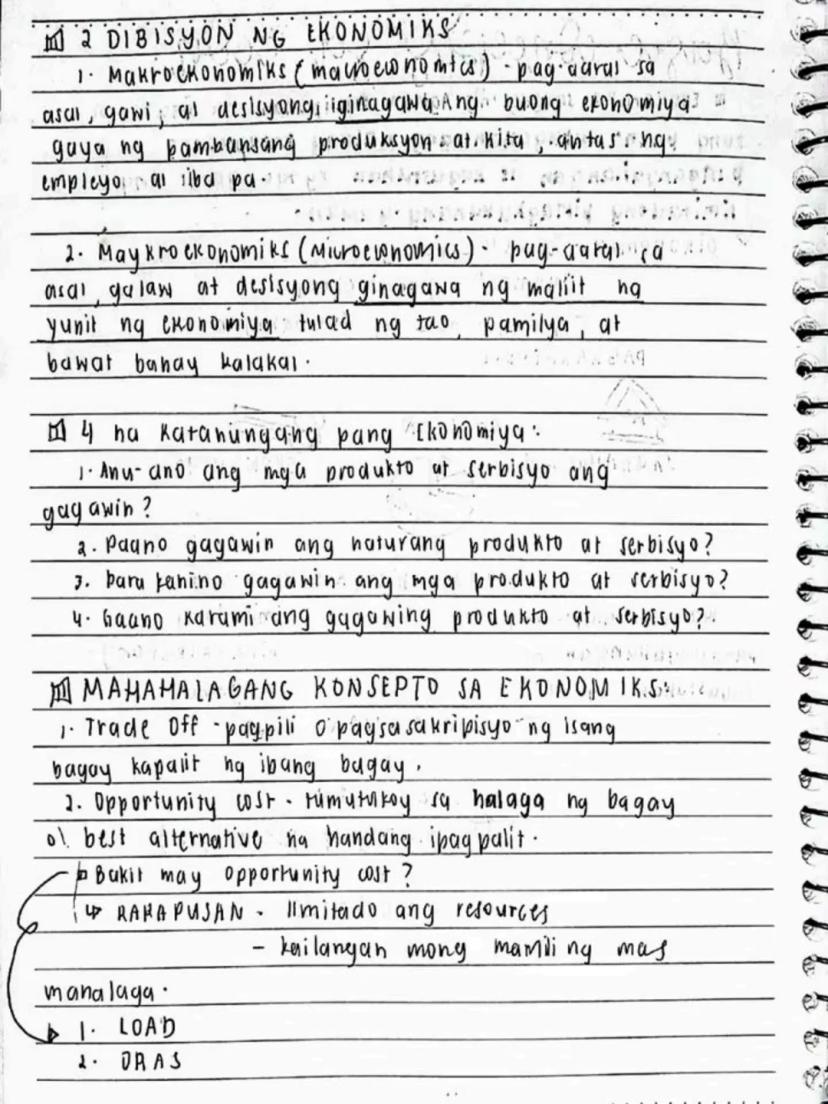 2 DIBISYON NG EKONOMIKS
1. Makroekonomiks (macroeconomics) - pag-aaral sa
asal, gawi, at desisyong iginagawa ng buong ekonomiya
gaya ng pambansang produksyon at kita, antas ng
empleyo at iba pa.
2. Maykroekonomiks (Microeconomics) - pag-aaral sa
asal, galaw at desisyong ginagawa ng maliit na
yunit ng ekonomiya tulad ng tao, pamilya, at
bawat bahay kalakal.
4 na Katanungang pang Ekonomiya:
1. Anu-ano ang mga produkto at serbisyo ang
gagawin?
2. Paano gagawin ang naturang produkto at serbisyo?
3. Para kanino gagawin ang mga produkto at serbisyo?
4. Gaano karami ang gagawing produkto at serbisyo?
MAHAHALAGANG KONSEPTO SA EKONOMIKS:
1. Trade Off - pagpili o pagsasakripisyo ng isang
bagay kapalit ng ibang bagay.
2. Opportunity cost - tumutukoy sa halaga ng bagay
o\ best alternative na handang ipagpalit.
Bakit may opportunity cost?
↳ KAKAPUSAN - limitado ang resources
- kailangan mong mamili ng mas
mahalaga.
1. LOAD
2. ORAS